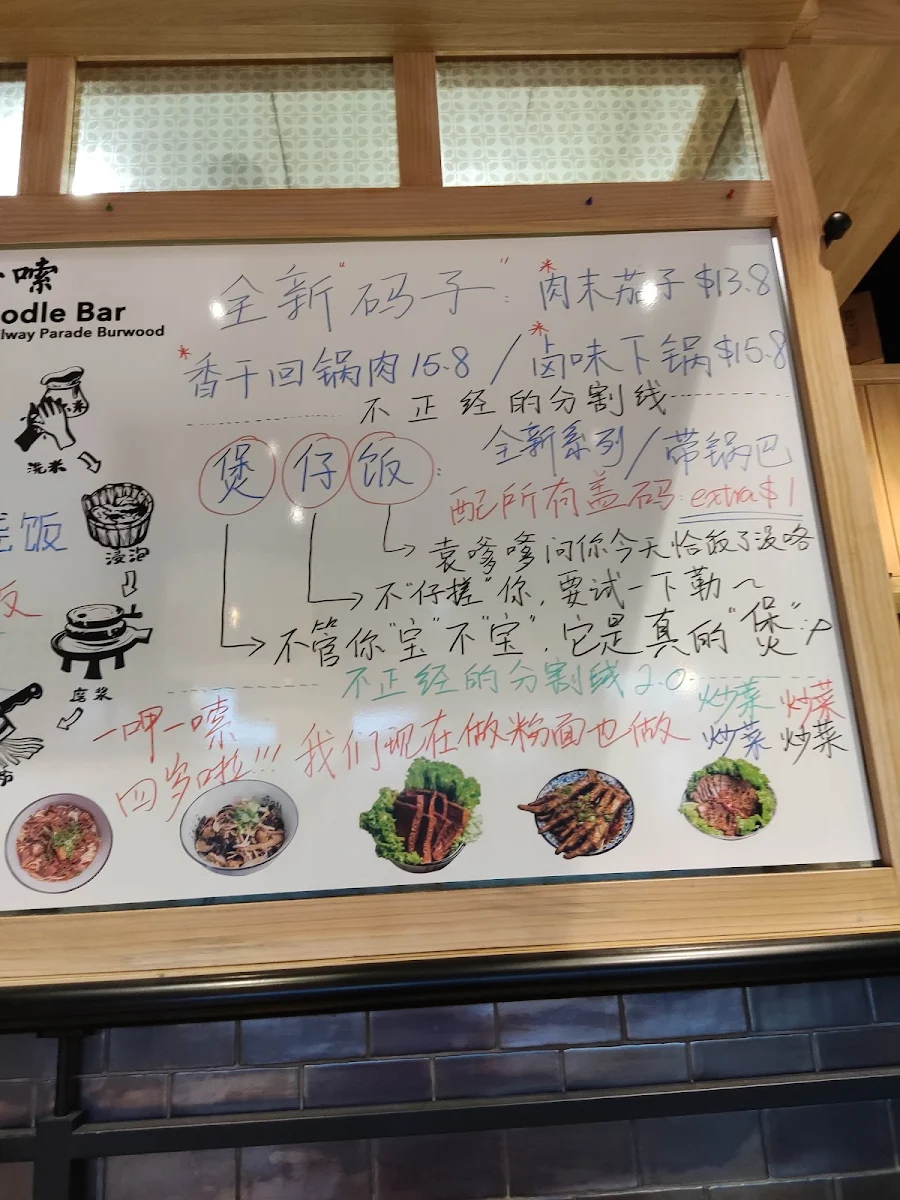 嗦
oodle Bar
ilway Parade Burwood
全新"码子"：*肉末茄子 $13.8
*香干回锅肉 15.8 / *卤味下锅 $15.8
不正经的分割线
煲仔饭：全新系列/带锅巴
配所有盖码：extra $1
袁爹爹问你今天恰饭了没咯
不"仔搓"你，要试一下勒~
不管你"宝"不"宝"，它是真的"煲"
不正经的分割线2.0
一呷一嗦
四岁啦!!! 我们现在做粉面也做
炒菜 炒菜
炒菜 炒菜
洗米
浸泡
磨浆
饭